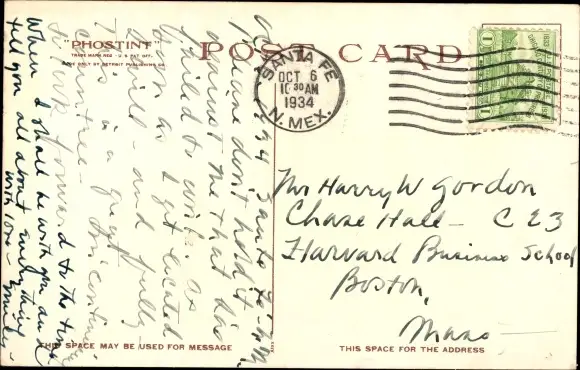 "PHOSTINT"
POST CARD
TRADE MARK REG. U.S. PAT. OFF.
MADE ONLY BY DETROIT PUBLISHING CO.
SANTA FE
OCT 6
10 30 AM
1934
N. MEX.
1
1
Mr Harry W Gordon
Chase Hall - C 23
Harvard Business School
Boston,
Mass
1934 Santa Fe - N.M.
Please don't hold it
against me that I've
failed to write. As
soon as I get located
I will - and fully
This is a great
Country -
look forward to the time
When I shall be with you and
tell you all about everything
with love -
THIS SPACE MAY BE USED FOR MESSAGE
THIS SPACE FOR THE ADDRESS